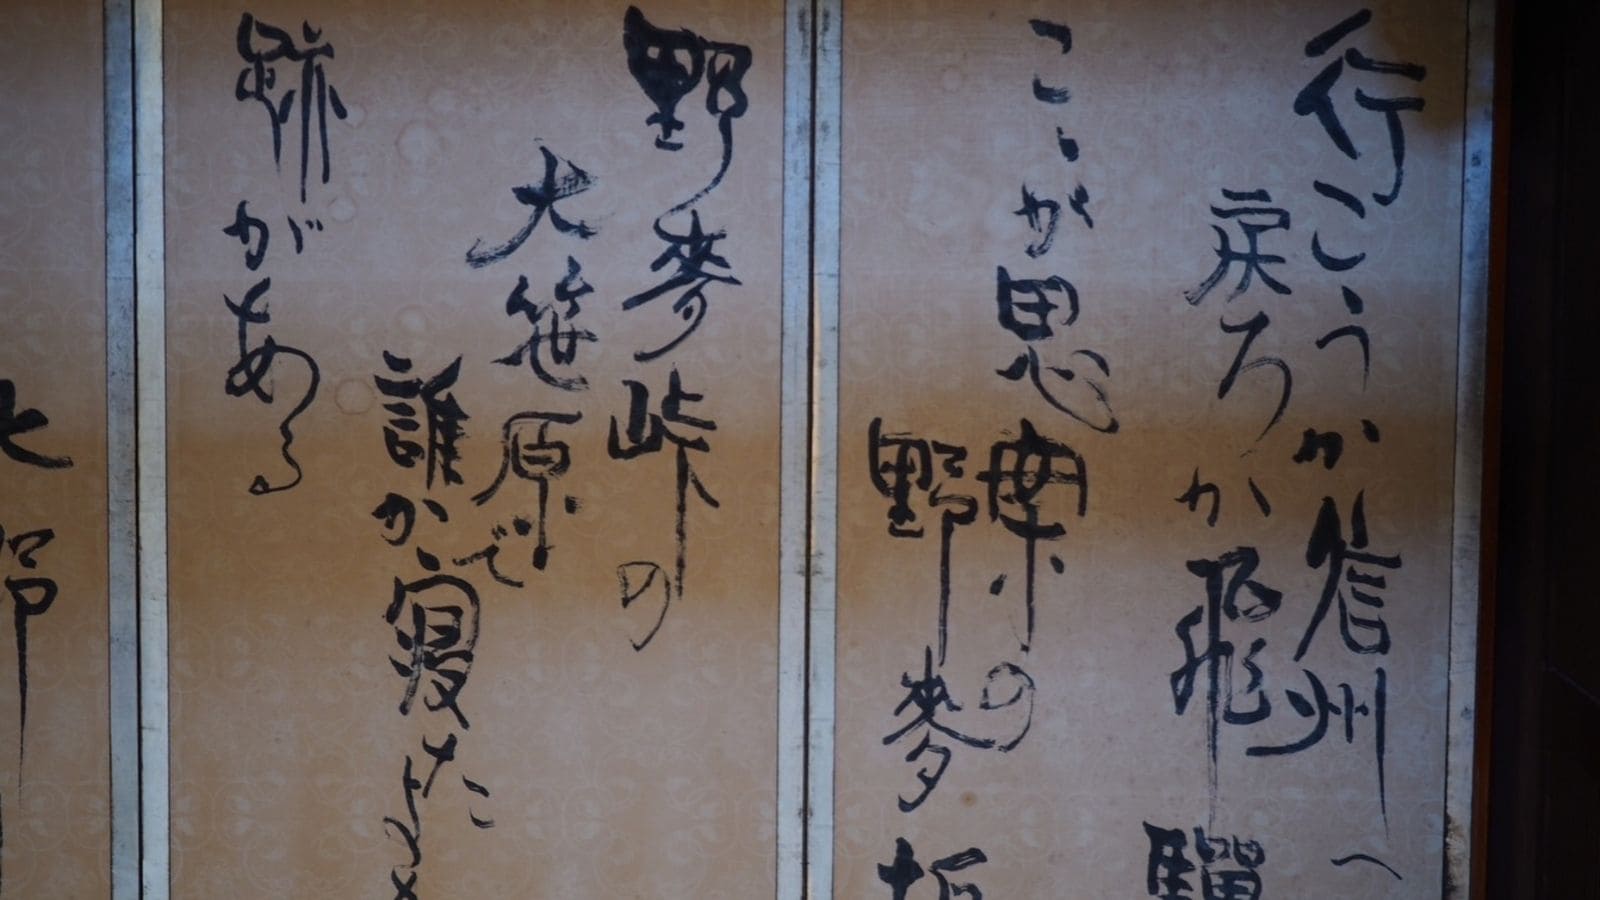 行こうか信州へ
戻ろか飛驒
こゝが思案の
野麥
野麥峠の
大笹原で
誰か寝た
跡がある